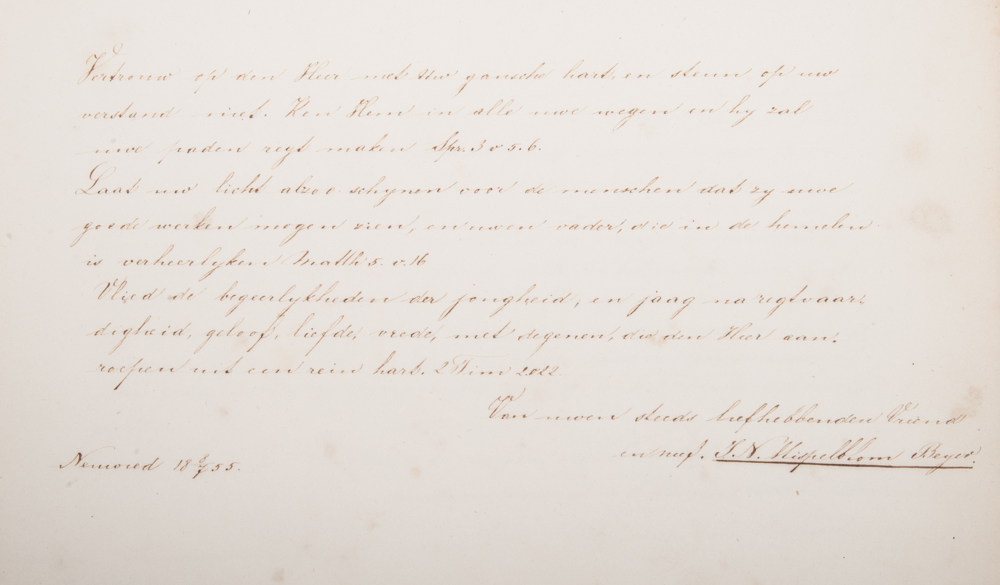 Vertrouw op den Heer met Uw gansche hart, en steun op uw
verstand niet. Ken Hem in alle uwe wegen en hy zal
uwe paden regt maken Spr. 3 v 5. 6.
Laat uw licht alzoo schynen voor de menschen dat zy uwe
goede werken mogen zien, en uwen vader, die in de hemelen
is verheerlyken Matth 5. v. 16
Vlied de begeerlykheden der jongheid, en jaag na regtvaar-
digheid, geloof, liefde, vrede, met degenen, die den Heer aan-
roepen uit een rein hart. 2 Tim 2.22
Van uwen steeds liefhebbenden Vriend
en neef. J. N. Mispelblom Beyer.
18 55.